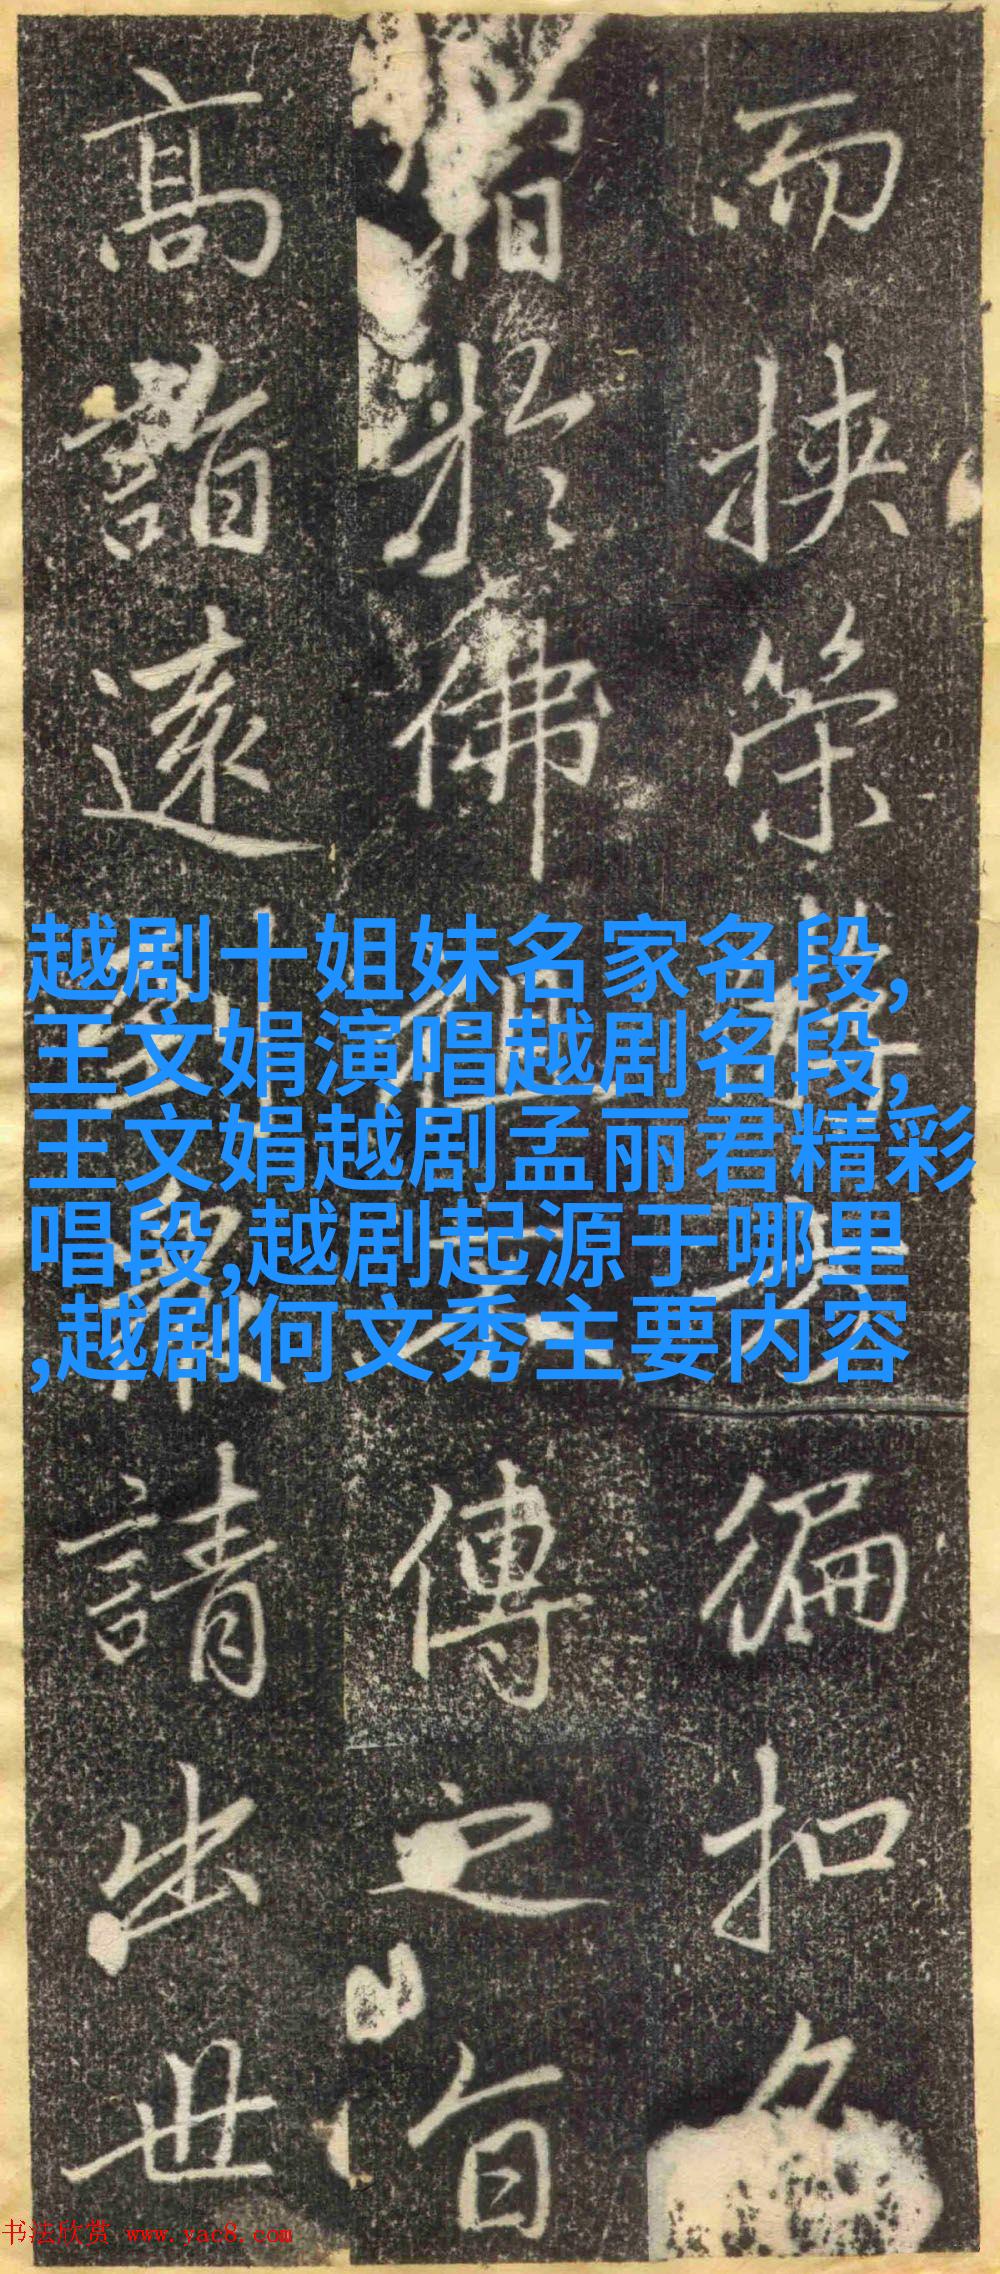 越剧十姐妹名家名段,
王文娟演唱越剧名段,
王文娟越剧孟丽君精彩
唱段,越剧起源于哪里
,越剧何文秀主要内容
而挾策徧扣
於佛傳之旨
高詣遠請出世
书法欣赏 www.yac8.com